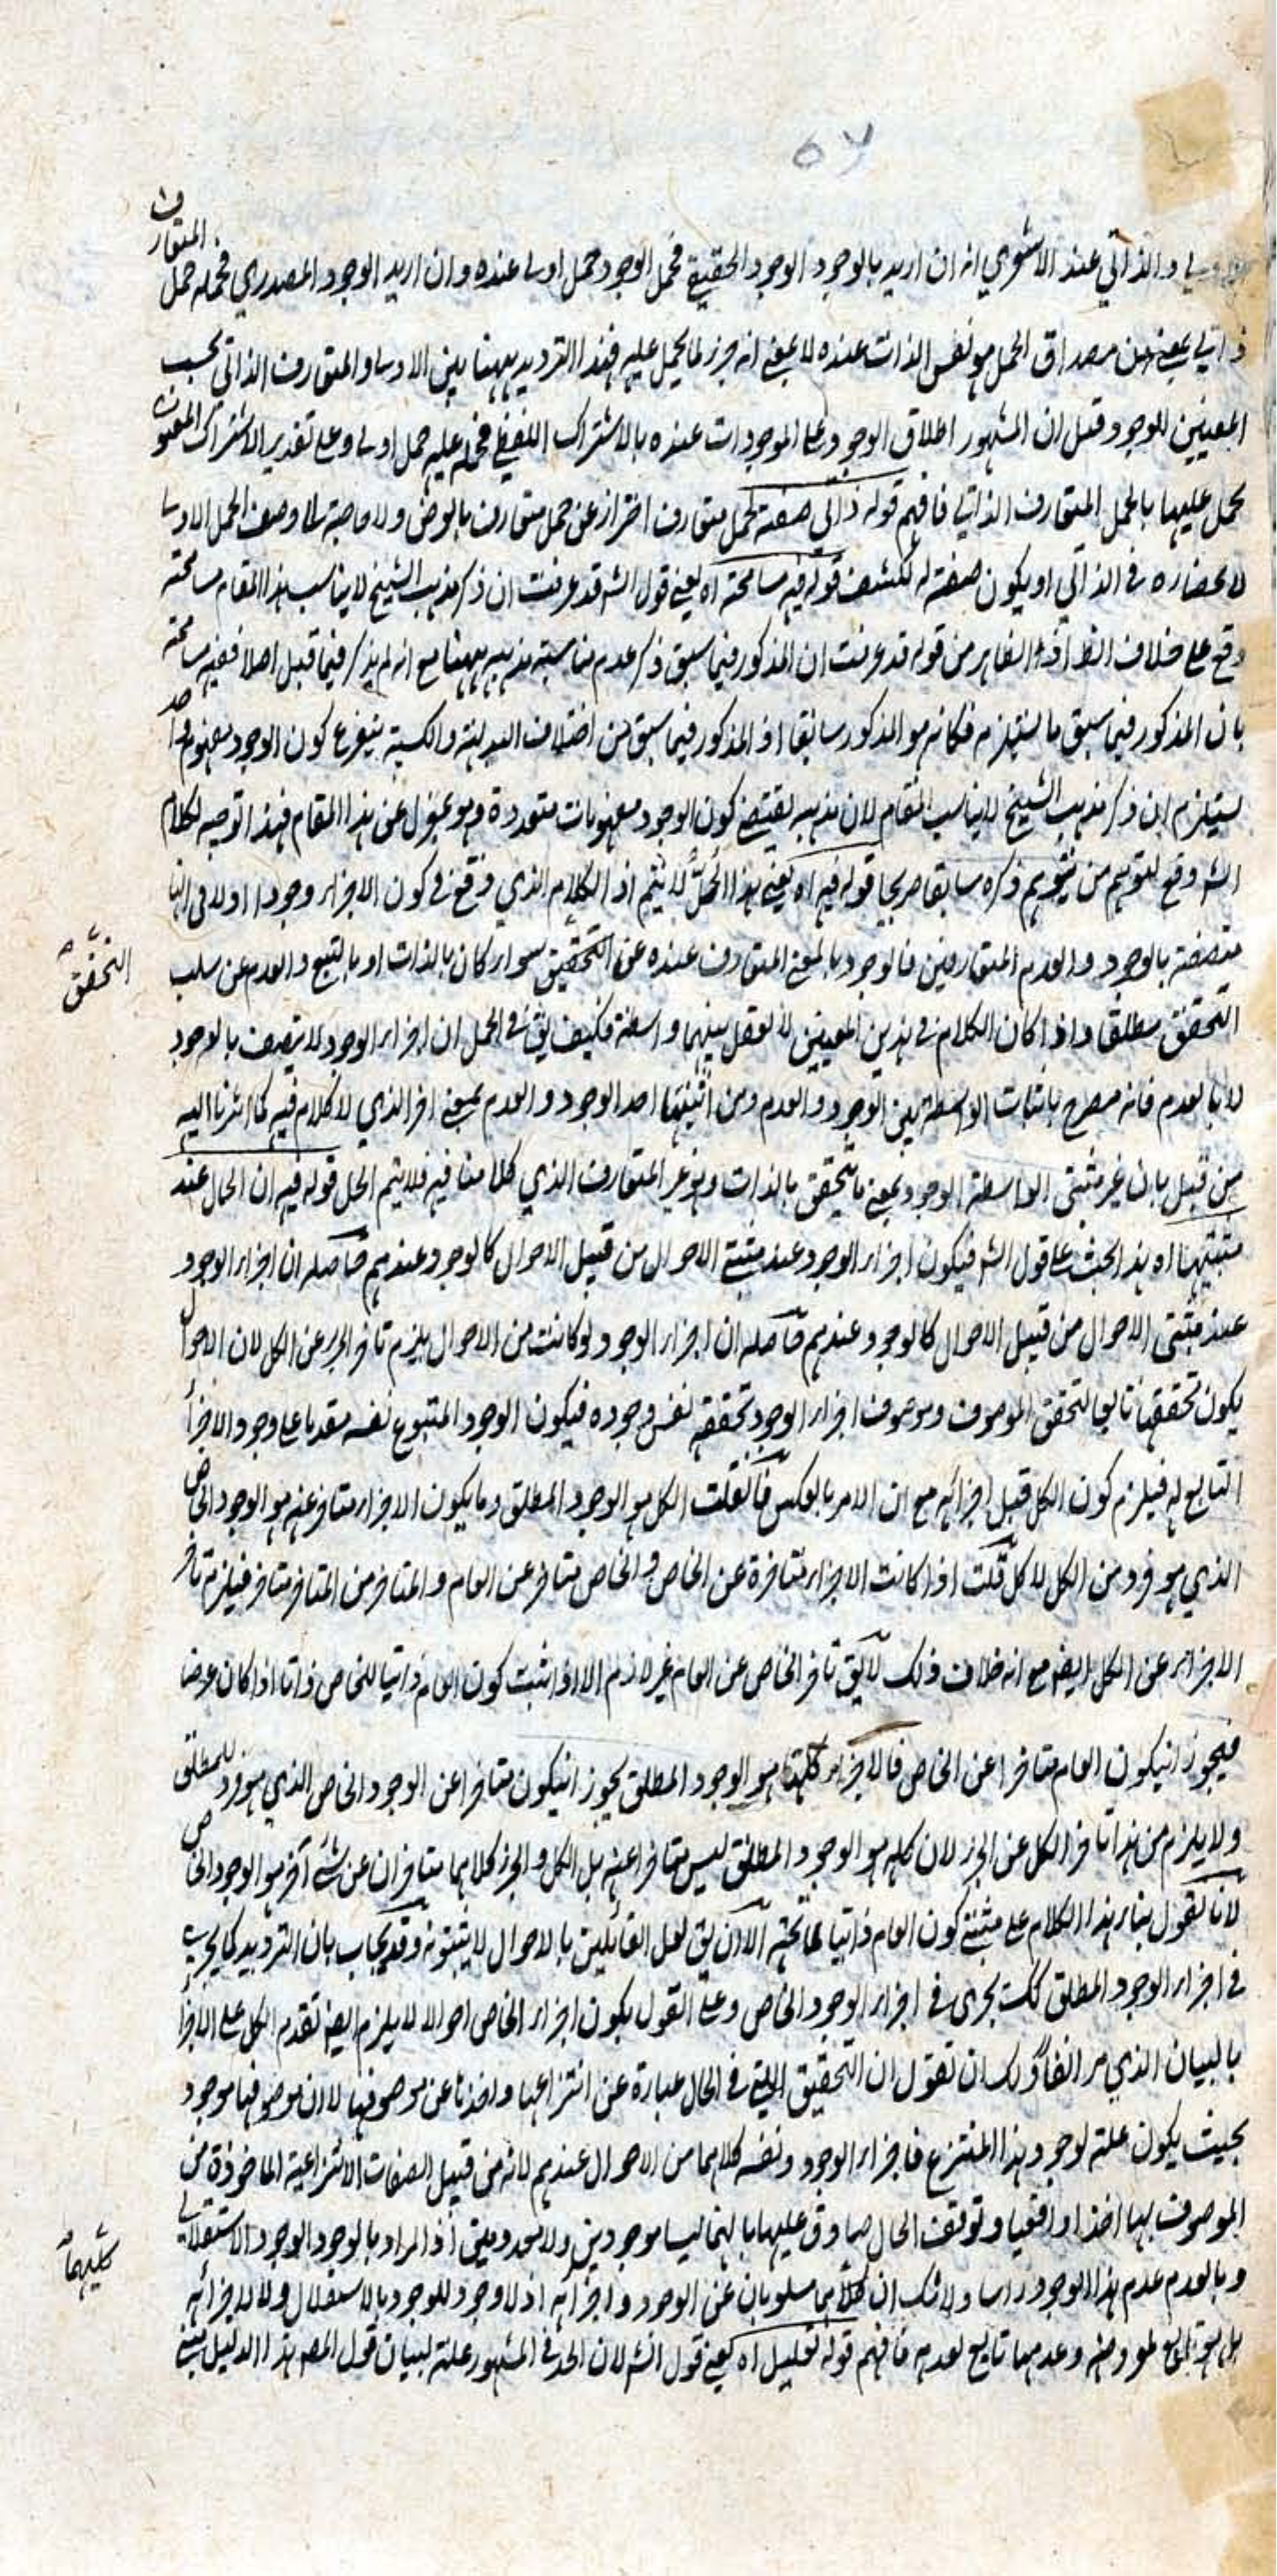 والذاتي عند الاشعري انه ان اريد بالوجود الوجود الحقيقي فحمل الوجود حمل اولى عنده وان اريد الوجود المصدري فحمله حمل المتعارف
ذاتي بمعنى ان مصداق الحمل هو نفس الذات عنده لا بمعنى انه جزء لما يحمل عليه فهذا الترديد ههنا بين الاولى والمتعارف الذاتي بحسب
المعنيين للوجود وقيل ان المشهور اطلاق الوجود على الموجودات عنده بالاشتراك اللفظي فحمله عليه حمل اولى وعلى تقدير الاشتراك المعنوي
يحمل عليها بالحمل المتعارف الذاتي فافهم قوله ذاتي صفة لحمل متعارف احتراز عن حمل متعارف بالعرض ولا حاجة الى وصف الحمل الاولى
لانحصاره في الذاتي او يكون صفة له للكشف قوله فيه مسامحة اه يعني قول الشه قد عرفت ان ذكر مذهب الشيخ لا يناسب هذا المقام مسامحة
وقع على خلاف الظ اذ الظاهر من قوله قد عرفت ان المذكور فيما سبق ذكر عدم مناسبة مذهبه ههنا مع انه لم يذكر فيما قبل اصلا ففيه مسامحة
بان المذكور فيما سبق ما يستلزمه فكانه هو المذكور سابقا اذ المذكور فيما سبق من اختلاف البديهة والكسبية يتفرع كون الوجود مفهوم واحد
يستلزم ان ذكر مذهب الشيخ لا يناسب المقام لان مذهبه يقتضي كون الوجود مفهومات متعددة وهو بمعزل عن هذا المقام فهذا توجيه لكلام
الشه وقع لتوهم من يتوهم ذكره سابقا صريحا قوله فيه اه يعني هذا الحل لا يتم اذ الكلام الذي وقع في كون الاجزاء وجودا اولا في انها
متصفة بالوجود والعدم المتعارفين فالوجود بالمعنى المتعارف عنده عن التحقق سواء كان بالذات او بالتبع والعدم عن سلب
التحقق مطلقا واذا كان الكلام في هذين المعنيين لا يعقل بينهما واسطة فكيف يق في الحل ان اجزاء الوجود لا يتصف بالوجود
لا بالعدم فانه مصرح باثبات الواسطة بين الوجود والعدم ومن اثبتها اخذ الوجود والعدم بمعنى اخر الذي لا كلام فيه كما اشرنا اليه
من قبل بان غير مثبتي الواسطة الوجود بمعنى ما يتحقق بالذات وهو غير المتعارف الذي كلامنا فيه فلا يتم الحل قوله فيه ان الحال عند
مثبتيها اه هذا بحث على قول الشه فيكون اجزاء الوجود عند مثبتي الاحوال من قبيل الاحوال كالوجود عندهم حاصله ان اجزاء الوجود
عند مثبتي الاحوال من قبيل الاحوال كالوجود عندهم حاصله ان اجزاء الوجود لو كانت من الاحوال يلزم تاخر الجزء عن الكل لان الاحوال
يكون تحققها تابعا لتحقق الموصوف وموصوف اجزاء الوجود تحققه نفس وجوده فيكون الوجود المتبوع نفسه مقدما على وجود الاجزاء
التابع له فيلزم كون الكل قبل اجزائه مع ان الامر بالعكس فان قلت الكل هو الوجود المطلق وما يكون الاجزاء متاخر عنه هو الوجود الخاص
الذي هو فرد من الكل لا كل قلت اذا كانت الاجزاء متاخرة عن الخاص والخاص متاخر عن العام والمتاخر من المتاخر متاخر فيلزم تاخر
الاجزاء عن الكل ايضم مع انه خلاف ذلك لا يق تاخر الخاص عن العام غير لازم الا اذا ثبت كون العام ذاتيا للخاص واما اذا كان عرضا
فيجوز انيكون العام متاخرا عن الخاص فالاجزاء كلها هو الوجود المطلق يجوز انيكون متاخرا عن الوجود الخاص الذي هو فرد للمطلق
ولا يلزم من هذا تاخر الكل عن الجزء لان كله هو الوجود المطلق ليس متاخرا عنه بل الكل والجزء كلاهما متاخران عن شئ آخر هو الوجود الخاص
لانا نقول بناء هذا الكلام على مثبتي كون العام ذاتيا لما تحته الا ان يق لعل القائلين بالاحوال لا يثبتونه وقد يجاب بان الترديد كما يجري
في اجزاء الوجود المطلق كك يجرى في اجزاء الوجود الخاص وعلى القول بكون اجزاء الخاص احوالا لا يلزم ايضم تقدم الكل على الاجزاء
بالبيان الذي مر انفا ولك ان تقول ان التحقيق في الحال عبارة عن انتزاعها واخذها عن موصوفها لا ان موصوفها موجود
بحيث يكون علة لوجود هذا المنتزع فاجزاء الوجود ونفسه كلاهما من الاحوال عندهم لانه من قبيل الصفات الانتزاعية الماخوذة من
الموصوف بها اخذا واقعيا وتوقف الحال صادق عليهما بانهما ليسا موجودين ولا معدومين اذ المراد بالوجود الوجود الاستقلالي
وبالعدم عدم هذا الوجود راسا ولا شك ان كلاهما مسلوبان عن الوجود واجزائه اذ لا وجود للوجود بالاستقلال ولا لاجزائه
بل هو تابع لمعروضه وعدمها تابع لعدمه فافهم قوله تعليل اه يعني قول الشه لان الحد في المشهور علة لبيان قول المصه هذا الدليل مبني
التحقق
كليهما